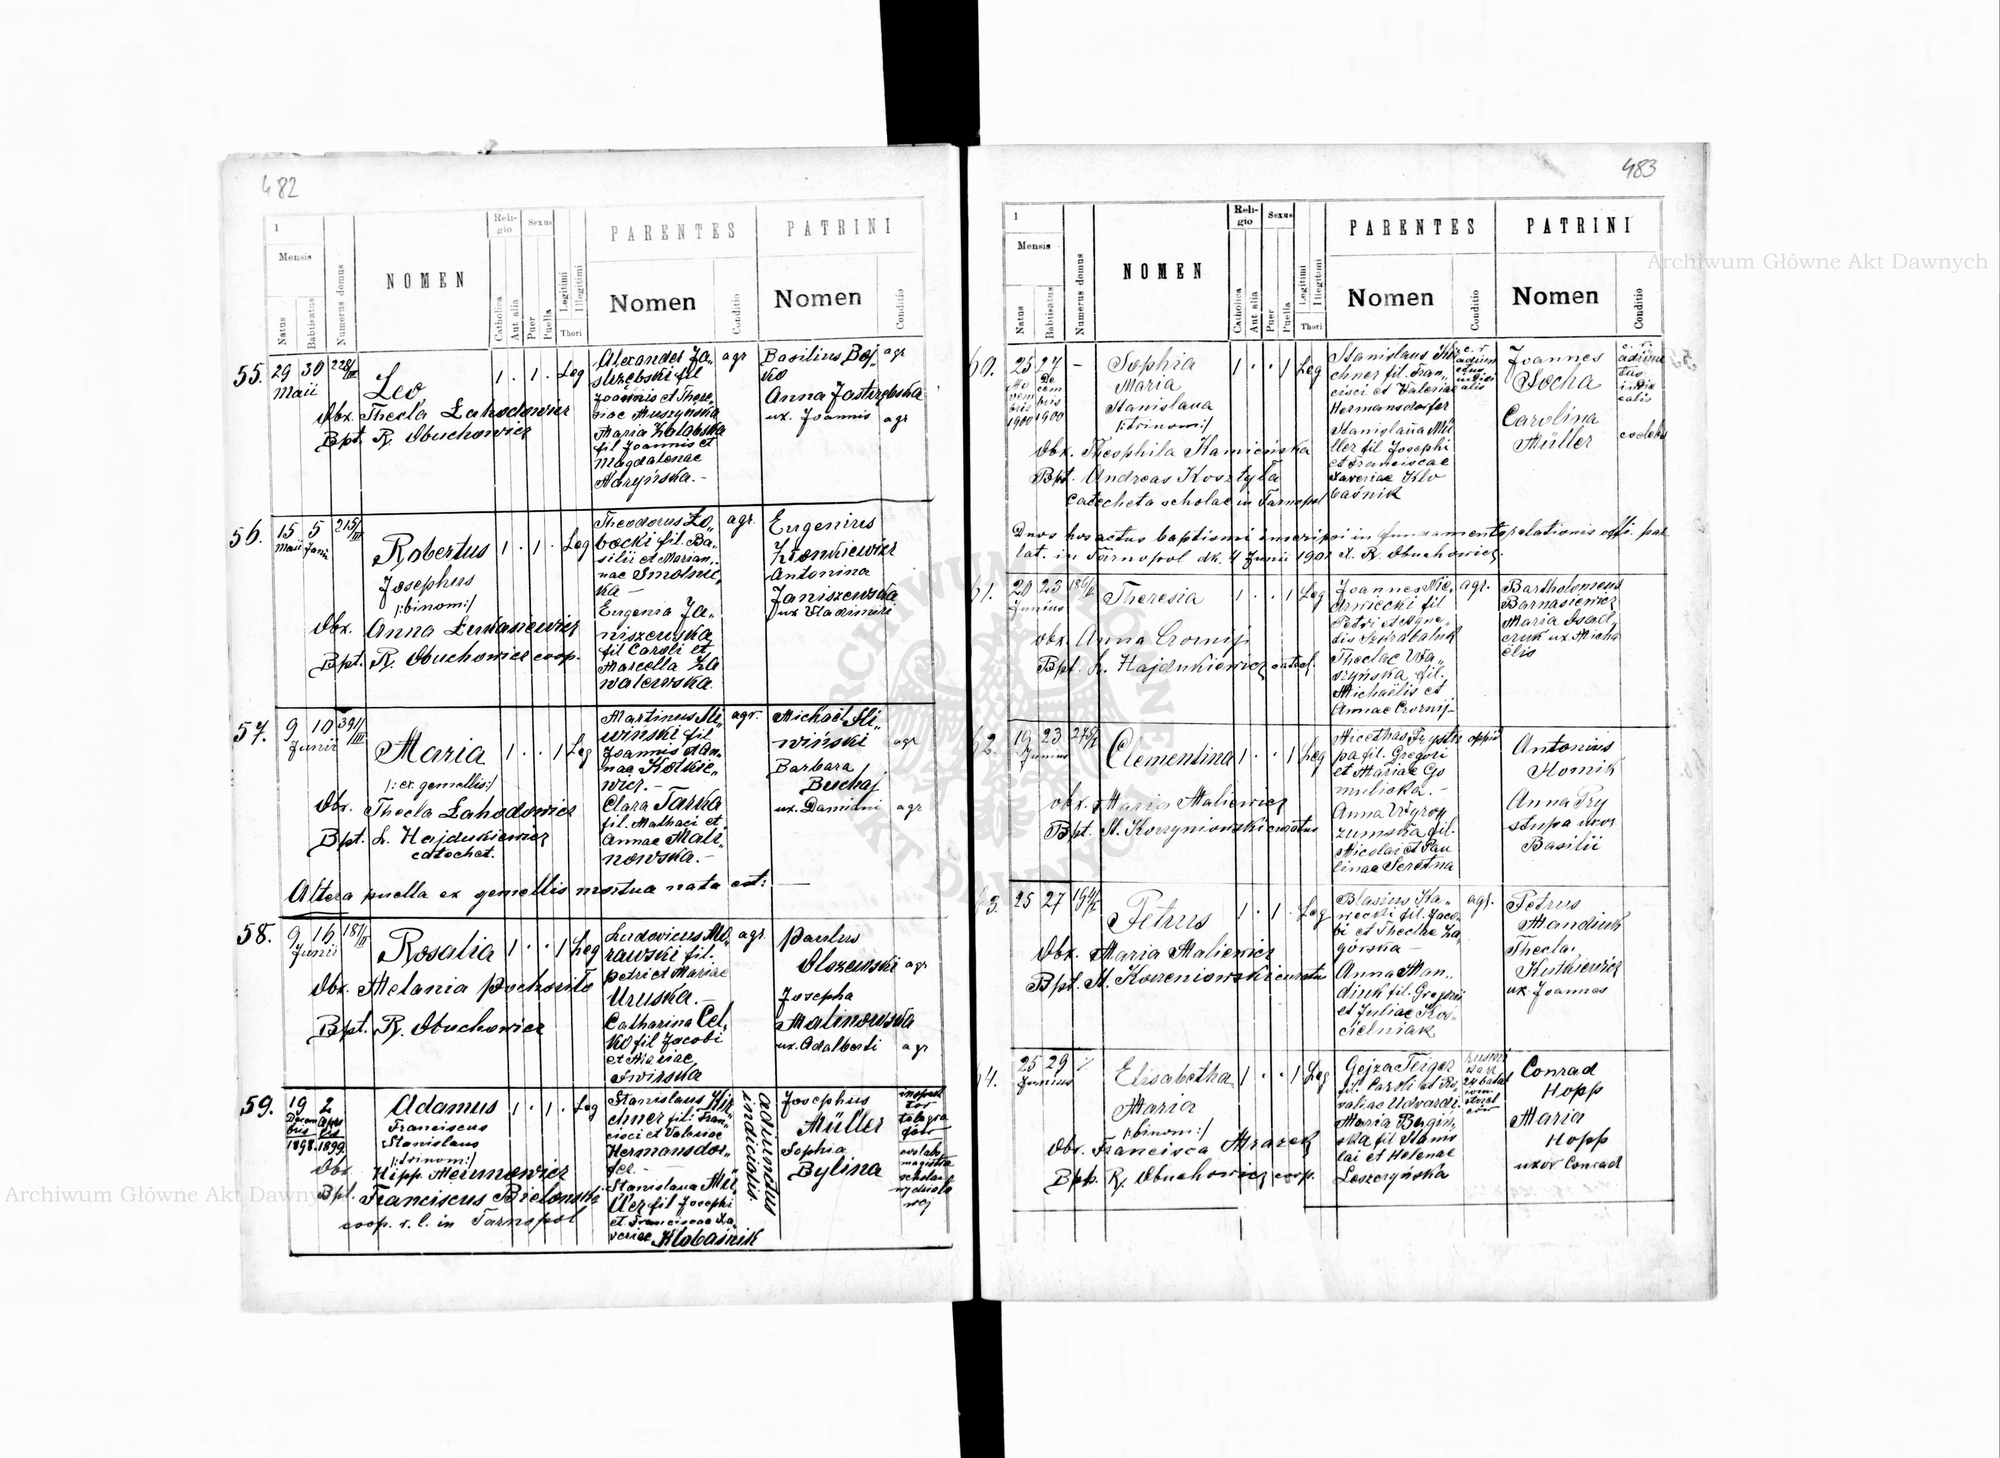 482
1
Mensis
Natus
Babtisatus
Numerus domus
NOMEN
Religio
Catholica
Aut alia
Sexus
Puer
Puella
Legitimi
Illegitimi
Thori
PARENTES
Nomen
Conditio
PATRINI
Nomen
Conditio
55. 29 30 Maii 228/III
Leo
1 · 1 · Leg
Obx. Thecla Lahodowicz
Bpt. R. Obuchowicz
Alexander Ja„
strzębski fil
Joannis et There„
siae Muszynska
Maria Zalabska
fil Joannis et
Magdalenae
Naryńska. –
agr
Basilius Boj„
ko
agr
Anna Jastrzębska
ux. Joannis
agr
56. 15 Maii 5 Junii 215/III
Robertus
Josephus
/:binom:/
1 · 1 · Leg
Obx. Anna Lukasiewicz
Bpt. R. Obuchowicz coop.
Theodorus Ło„
bocki fil. Ba„
silii et Marian„
nae Smolnic„
ka –
Eugenia Ja„
niszewska
fil Caroli et
Marcella Za
walewska
agr.
Eugenius
Złonkiewicz
Antonina
Janiszewska
ux Vladimiri
57. 9 10 Junii 391/III
Maria
/:ex gemellis:/
1 · · 1 Leg
Obx. Thecla Lahodowicz
Bpt. L. Hajdukiewicz
catechet.
Martinus Sli„
wiński fil
Joannis et An„
nae Kotkie„
wicz. –
Clara Tarka
fil. Mathaei et
Annae Mali„
nowska. –
agr.
Michaël Sli„
wiński
agr
Barbara
Buchaj
ux. Damiani
agr
Altera puella ex gemellis mortua nata est: —
58. 9 16 Junii 181/II
Rosalia
1 · · 1 Leg
Obx. Melania Pochoriło
Bpt. R. Obuchowicz
Ludovicus Mo„
rawski fil.
Petri et Mariae
Uruska. –
Catharina Cel„
ko fil Jacobi
et Mariae
Swirska
agr.
Paulus
Olszewski
agr
Josepha
Malinowska
ux. Adalberti
agr
59. 19 Decembris 1898. 2 Aprilis 1899
Adamus
Franciscus
Stanislaus
/:trinom:/
1 · 1 · Leg
Obx. Hipp. Merunowicz
Bpt. Franciscus Bielonski
coop. r. l. in Tarnopol
Stanislaus Kir„
chner fil: Fran„
cisci et Valeriae
Hermansdor„
fer. –
Stanislava Mü„
ller fil Josephi
et Franciscae Xa„
veriae Klobaśnik
adiunctus
indicialis.
Josephus
Müller
Sophia
Bylina
483
1
Mensis
Natus
Babtisatus
Numerus domus
NOMEN
Religio
Catholica
Aut alia
Sexus
Puer
Puella
Legitimi
Illegitimi
Thori
PARENTES
Nomen
Conditio
PATRINI
Nomen
Conditio
60. 25 Novembris 1900 27 Decembris 1900 –
Sophia
Maria
Stanislava
/:trinom:/
1 · · 1 Leg
Obx. Theophila Kamieńska
Bpt. Andreas Kosztyła
catecheta scholae in Tarnopol
Stanislaus Kir
chner fil. Fran„
cisci et Valeriae
Hermansdorfer
Stanislava Mü
ller fil Josephi
et Franciscae
Xaveriae Klo
baśnik
c. r. adiunctus indicialis
Joannes
Socha
c. r. adiunctus indicialis
Carolina
Müller
coelebs
Duos hos actus baptismi inscripsi in fundamento relationis offi. par.
lat. in Tarnopol dk. 4 Junii 1901 X. R. Obuchowicz.
61. 20 23 Junius 186/I
Theresia
1 · · 1 Leg
Obx. Anna Czornij
Bpt. L. Hajdukiewicz catech.
Joannes Nie„
drwiecki fil
Petri et Agne„
tis Szkrabaluk
Theclae Wa„
szyńska fil.
Michaëlis et
Annae Czornij –
agr.
Bartholomeus
Barnasiewicz
Maria
ux Micha
ëlis
62. 19 23 Junius
Clementina
1 · · 1 Leg
Obx. Maria Maliewicz
Bpt. M. Korzyniowski curatus
Nicethas Przystu
pa fil. Gregori
et Mariae Go
mulicka. –
Anna Wyroz
zumska fil.
Nicolai et Pau
linae Seretna
oppid
Antonius
Homik
Anna Pry
stupa uxor
Basilii
63. 25 27 194/I
Petrus
1 · 1 · Leg
Obx. Maria Maliewicz
Bpt. M. Korzeniowski curatus
Blasius Ka„
wecki fil. Jaco„
bi et Theclae Za„
górska –
Anna Man„
diuk fil. Gregorii
et Juliae Kos„
sielniak
agr.
Petrus
Mandiuk
Thecla
Kutkiewicz
ux. Joannes
64. 25 29 Junius
Elisabetha
Maria
/:binom:/
1 · · 1 Leg
Obx. Francisca Mrazek
Bpt. R. Obuchowicz coop.
Gejza Teiger
fil. Caroli et Ro„
saliae Udvardi.
Maria Bugin„
ska fil Stanis
lai et Helenae
Leszczyńska
Conrad
Hopp
Maria
Hopp
uxor Conrad
Archiwum Główne Akt Dawnych
Archiwum Główne Akt Dawnych
ARCHIWUM GŁÓWNE AKT DAWNYCH